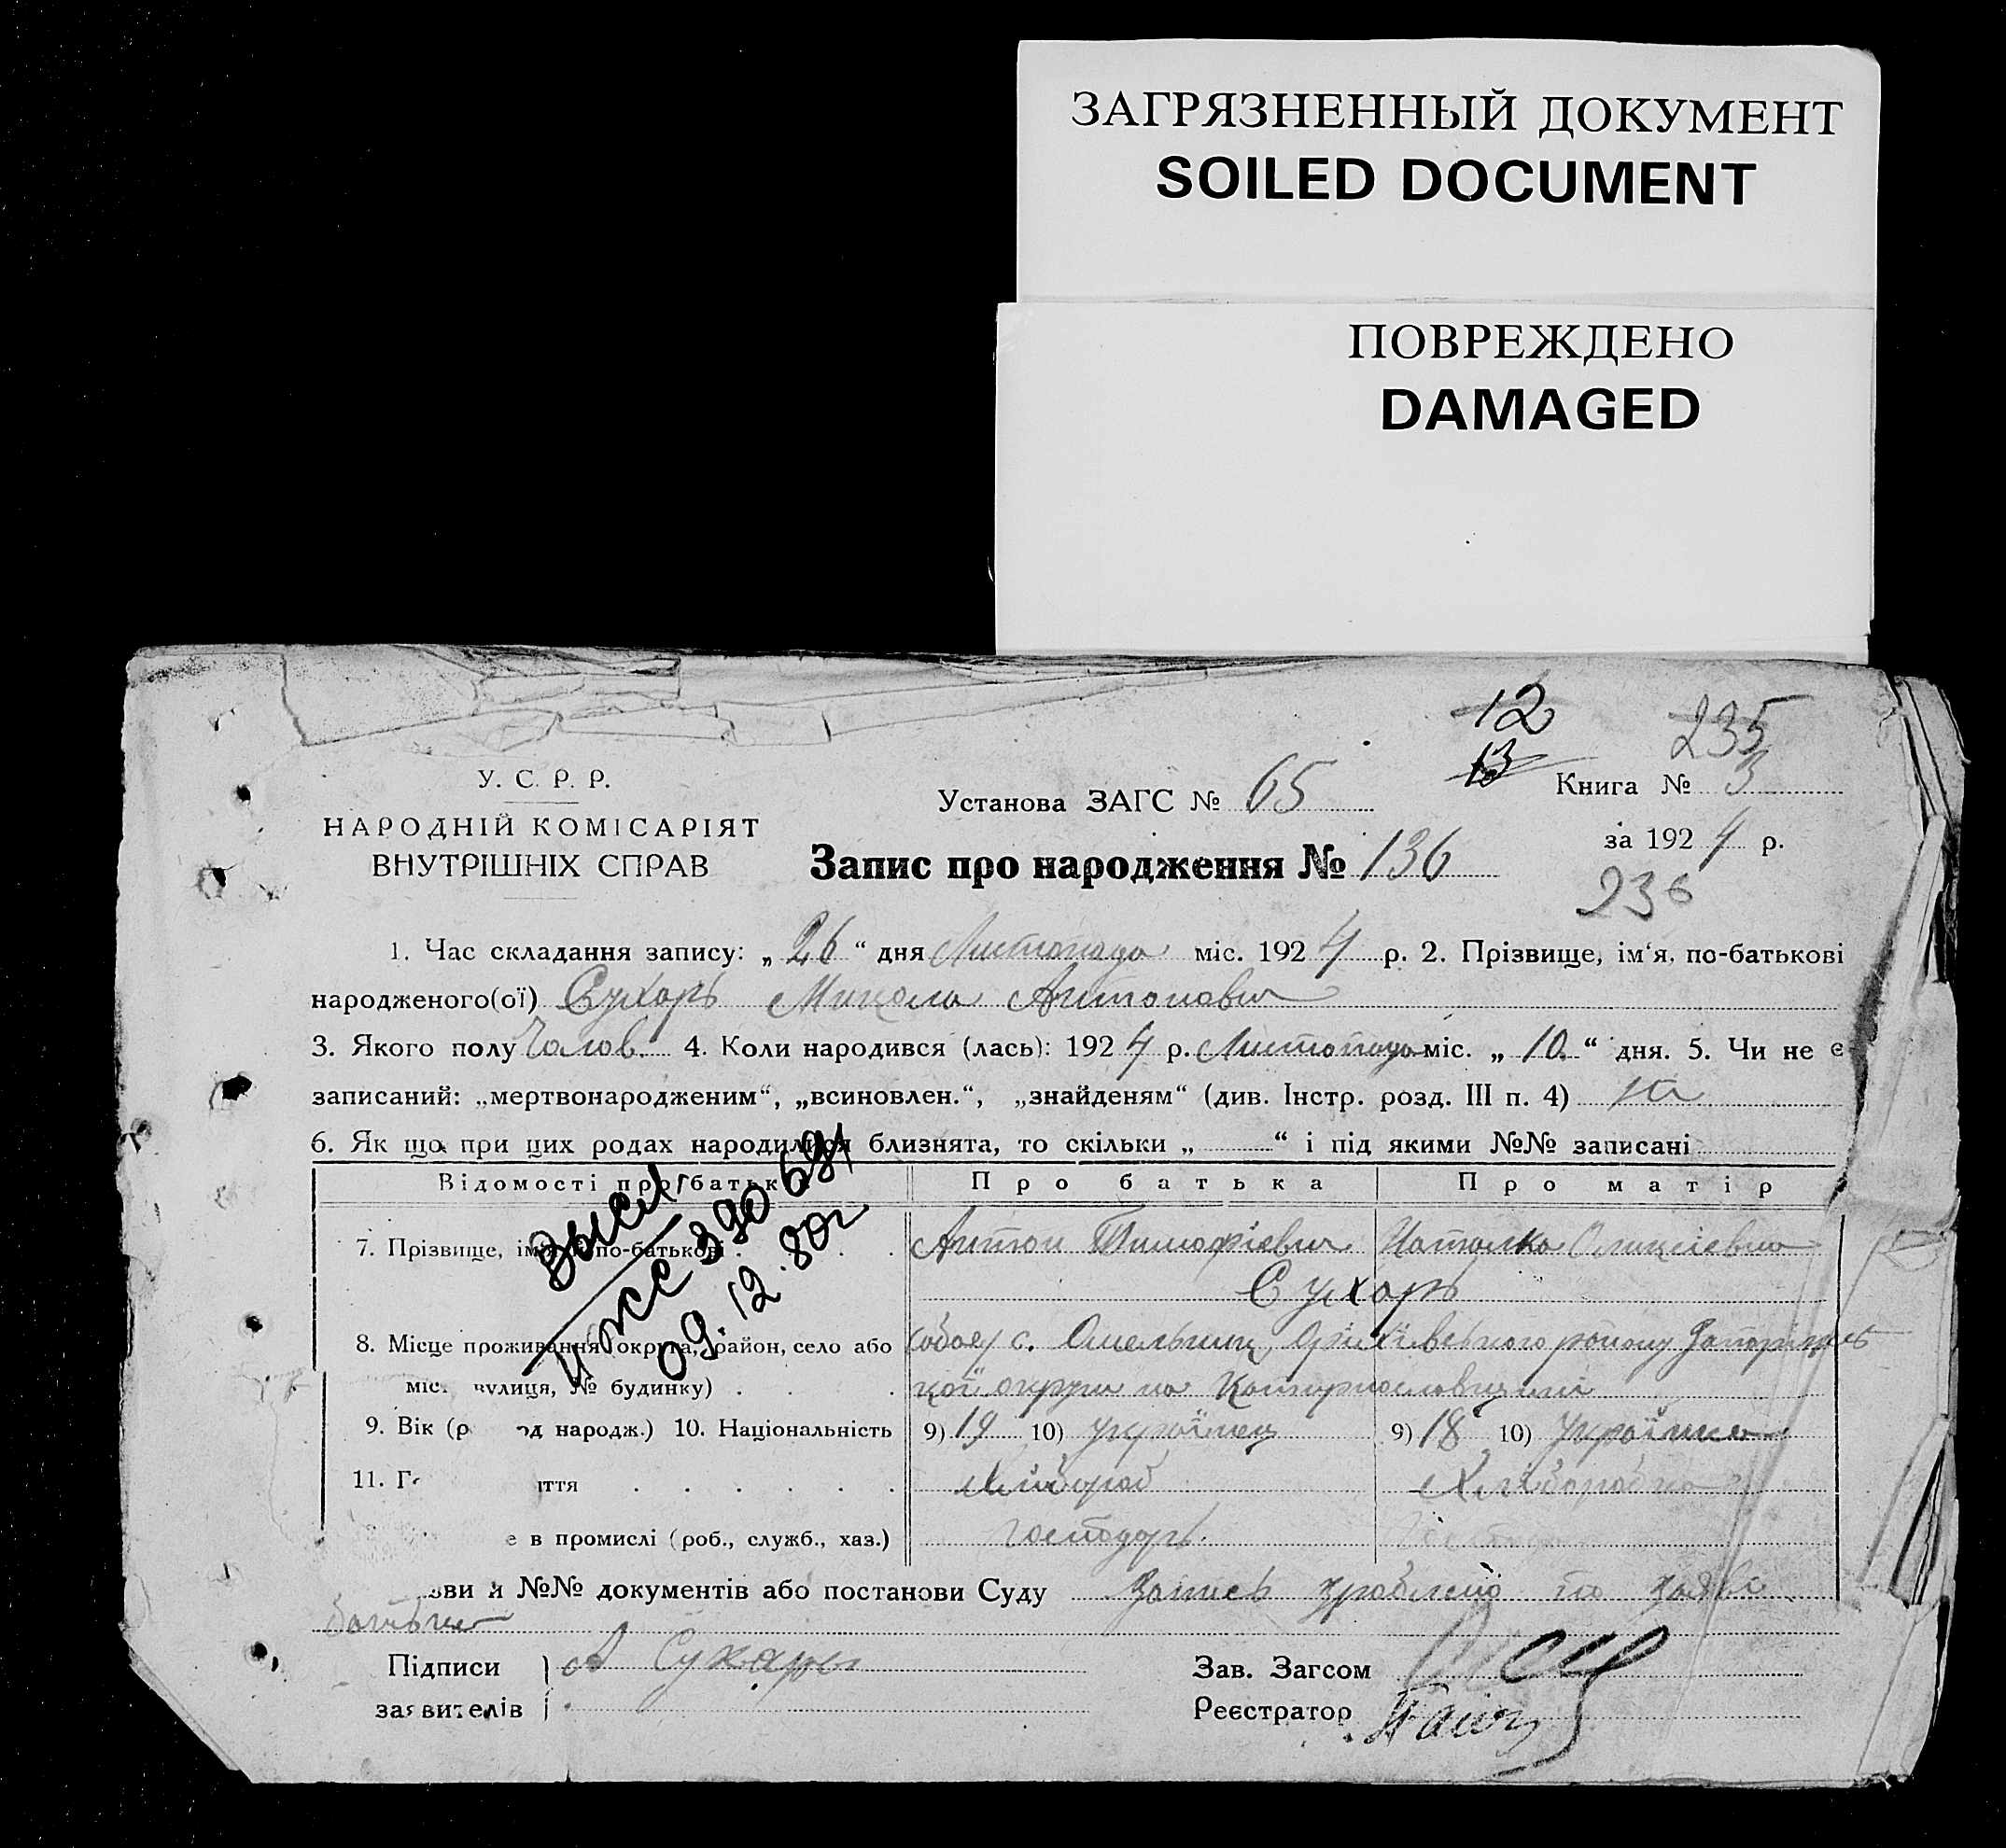 ЗАГРЯЗНЕННЫЙ ДОКУМЕНТ
SOILED DOCUMENT
ПОВРЕЖДЕНО
DAMAGED
12
13
235
У. С. Р. Р.
НАРОДНІЙ КОМІСАРІЯТ
ВНУТРІШНІХ СПРАВ
Установа ЗАГС № 65
Книга № 3
за 1924 р.
Запис про народження № 136
236
1. Час складання запису: „26“ дня Листопада міс. 1924 р. 2. Прізвище, ім‘я, по-батькові
народженого(ої) Сухарь Микола Антонович
3. Якого полу Чолов. 4. Коли народився (лась): 1924 р. Листопада міс. „10“ дня. 5. Чи не є
записаний: „мертвонародженим“, „всиновлен.“, „знайденям“ (див. Інстр. розд. III п. 4) ні
6. Як що при цих родах народилися близнята, то скільки „ “ і під якими №№ записані
Відомості про батьк
Про батька
Про матір
7. Прізвище, ім'я, по-батькові
Антон Тимофієвич
Наталка Олексієвна
Сухарь
8. Місце проживання (округа, район, село або
с. Омельник, Оріхівського району Запоріжсь
міс. вулиця, № будинку)
кої округи на Катеринославщині
9. Вік (р од народж.) 10. Національність
9) 19 10) українец
9) 18 10) Українка
11. Г иття
Хлібороб
Хліборобка
е в промислі (роб., служб., хаз.)
Господарь
зви й №№ документів або постанови Суду Запись зроблено по заяві
батька
Підписи
заявителів
А Сухарь
Зав. Загсом
Реєстратор
II ЖС 390691
09.12.80г